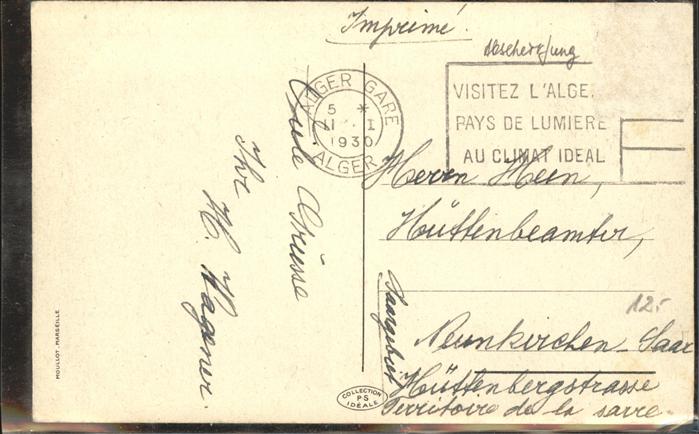 Imprimé.
Abscherzung
ALGER GARE
5 *
II I
1930
ALGER
VISITEZ L'ALGE
PAYS DE LUMIERE
AU CLIMAT IDEAL
Gute Grüsse
Ihr
H. Wagener.
Herrn Hein,
Hüttenbeamter,
Saargebiet
12.-
Neunkirchen-Saar
Hüttenbergstrasse
Territoire de la sarre.
MOULLOT - MARSEILLE
COLLECTION
PS
IDÉALE